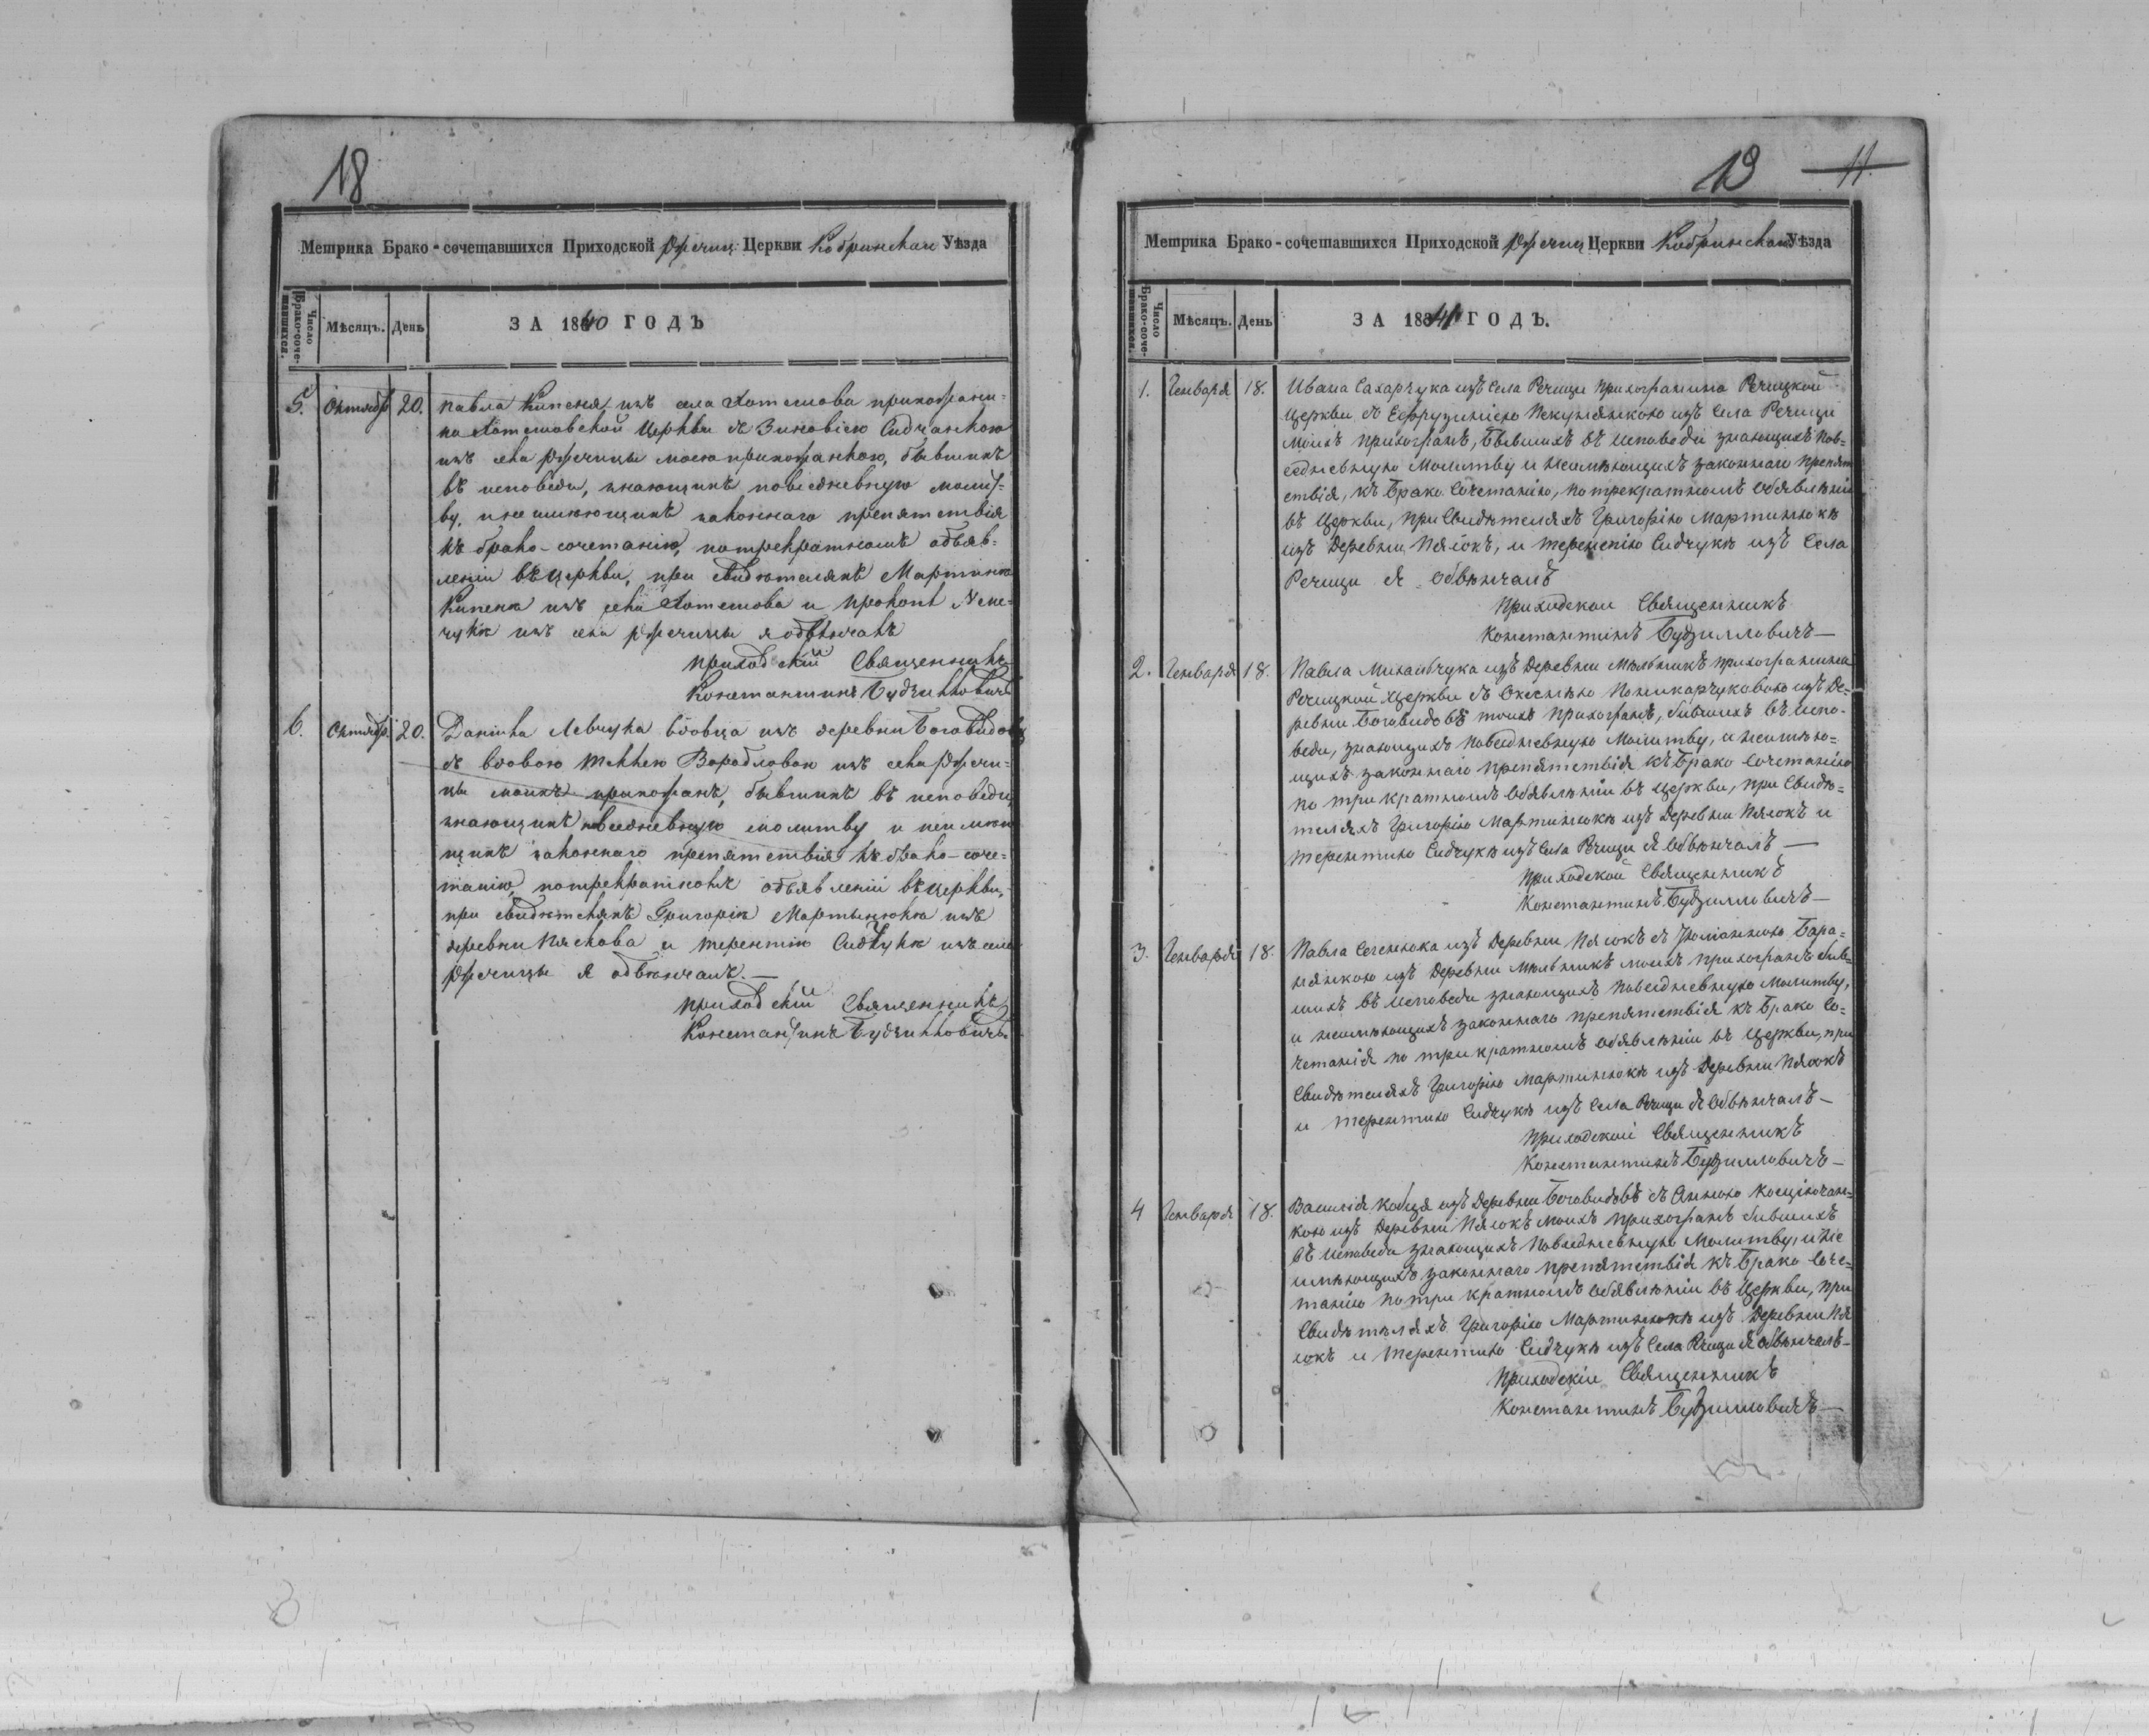 18
Метрика Брако-сочетавшихся Приходской Ржечиц Церкви Кобринскаи Уѣзда
Число Брако-сочетавшихся.
Мѣсяцъ.
День
ЗА 1840 ГОДЪ
5. Октябр 20. Павла Кипеня изъ села Хотешова прихожани-
на Хотешовской Церкви съ Зиновіею Сидчанкою
изъ села Ржечицы моею прихожанкою, бывшихъ
въ исповеди, знающихъ повседневную молит-
ву, и не имеющихъ законнаго препятствія
къ брако-сочетанію, по трехратномъ объяв-
леніи въ церкви, при свидѣтеляхъ Мартина
Кипеня изъ села Хотешова и Прокопѣ
изъ села Ржечицы я обвѣнчалъ
Приходскій Священникъ
Константинъ Будзилловичъ
6. Октябр. 20. Данила Левчука вдовца изъ деревни Боговидовъ
съ вдовою изъ села Ржечи-
цы моихъ прихожанъ, бывшихъ въ исповеди,
знающихъ повседневную молитву и неимею
щихъ законнаго препятствія къ брако-соче-
танію, по трехратномъ объявленіи въ церкви,
при свидѣтеляхъ Григорія Мартынюка изъ
деревни Пяскова и Терентію Сидчука изъ села
Ржечицы я обвѣнчалъ.—
Приходскій Священникъ
Константинъ Будзилловичъ
19 11.
Метрика Брако-сочетавшихся Приходской Ржечиц Церкви Кобринскаи Уѣзда
Число Брако-сочетавшихся.
Мѣсяцъ.
День
ЗА 1841 ГОДЪ.
1. Генваря 18. Ивана Сахарчука изъ Села Речици прихожанина Речицкой
Церкви съ Ефрузиніею изъ Села Речици
моихъ прихожанъ, бывшихъ въ исповеди знающихъ пов-
седневную Молитву и неимѣющихъ законнаго препят
ствія, къ Брако Сочетанію, по трекратномъ обявлѣніи
въ Церкви, при Свидѣтеляхъ Григорію Мартинюкѣ
изъ Деревни Пясокъ, и Терентію Сидчукѣ изъ Села
Речици я обвѣнчалъ
Приходскои Священникъ
Константинъ Будзилловичъ—
2. Генваря 18. Павла Михальчука изъ Деревни Мѣльникъ прихожанина
Речицкой Церкви съ изъ Де-
ревни Боговидовъ моихъ прихожанъ, бившихъ въ испо-
веди, знающихъ повседневную Молитву, и неимѣю-
щихъ законнаго препятствія къ Брако Сочетанію
по трикратномъ обявлѣніи въ Церкви, при Свидѣ-
теляхъ Григорію Мартинюкѣ изъ Деревни Пясокъ и
Терентию Сидчукѣ изъ Села Речици я обвѣнчалъ—
Приходской Священникъ
Константинъ Будзилловичъ—
3. Генваря 18. Павла изъ Деревни Пясокъ съ Бара-
нянкою изъ Деревни Мѣльникъ моихъ прихожанъ бив-
шихъ въ исповеди знающихъ повседневную Молитву,
и неимѣющихъ законнаго препятствія къ Брако Со-
четанія по трикратномъ обявлѣніи въ Церкви, при
Свидѣтеляхъ Григорію Мартинюкѣ изъ Деревни Пясокъ
и Терентию Сидчукѣ изъ Села Речици я обвѣнчалъ—
Приходскій Священникъ
Константинъ Будзилловичъ—
4 Генваря 18. Василія Кобця изъ Деревни Боговидовъ съ Анною
кою изъ Деревни Пясокъ моихъ прихожанъ бившихъ
въ исповеди знающихъ повседневную Молитву, и не
имѣющихъ законнаго препятствія къ Брако Соче-
танію по трикратномъ обявлѣніи въ Церкви, при
Свидѣтеляхъ Григорію Мартинюкѣ изъ Деревни Пя
сокъ и Терентию Сидчукѣ изъ Села Речици я обвѣнчалъ—
Приходскіи Священникъ
Константинъ Будзилловичъ—